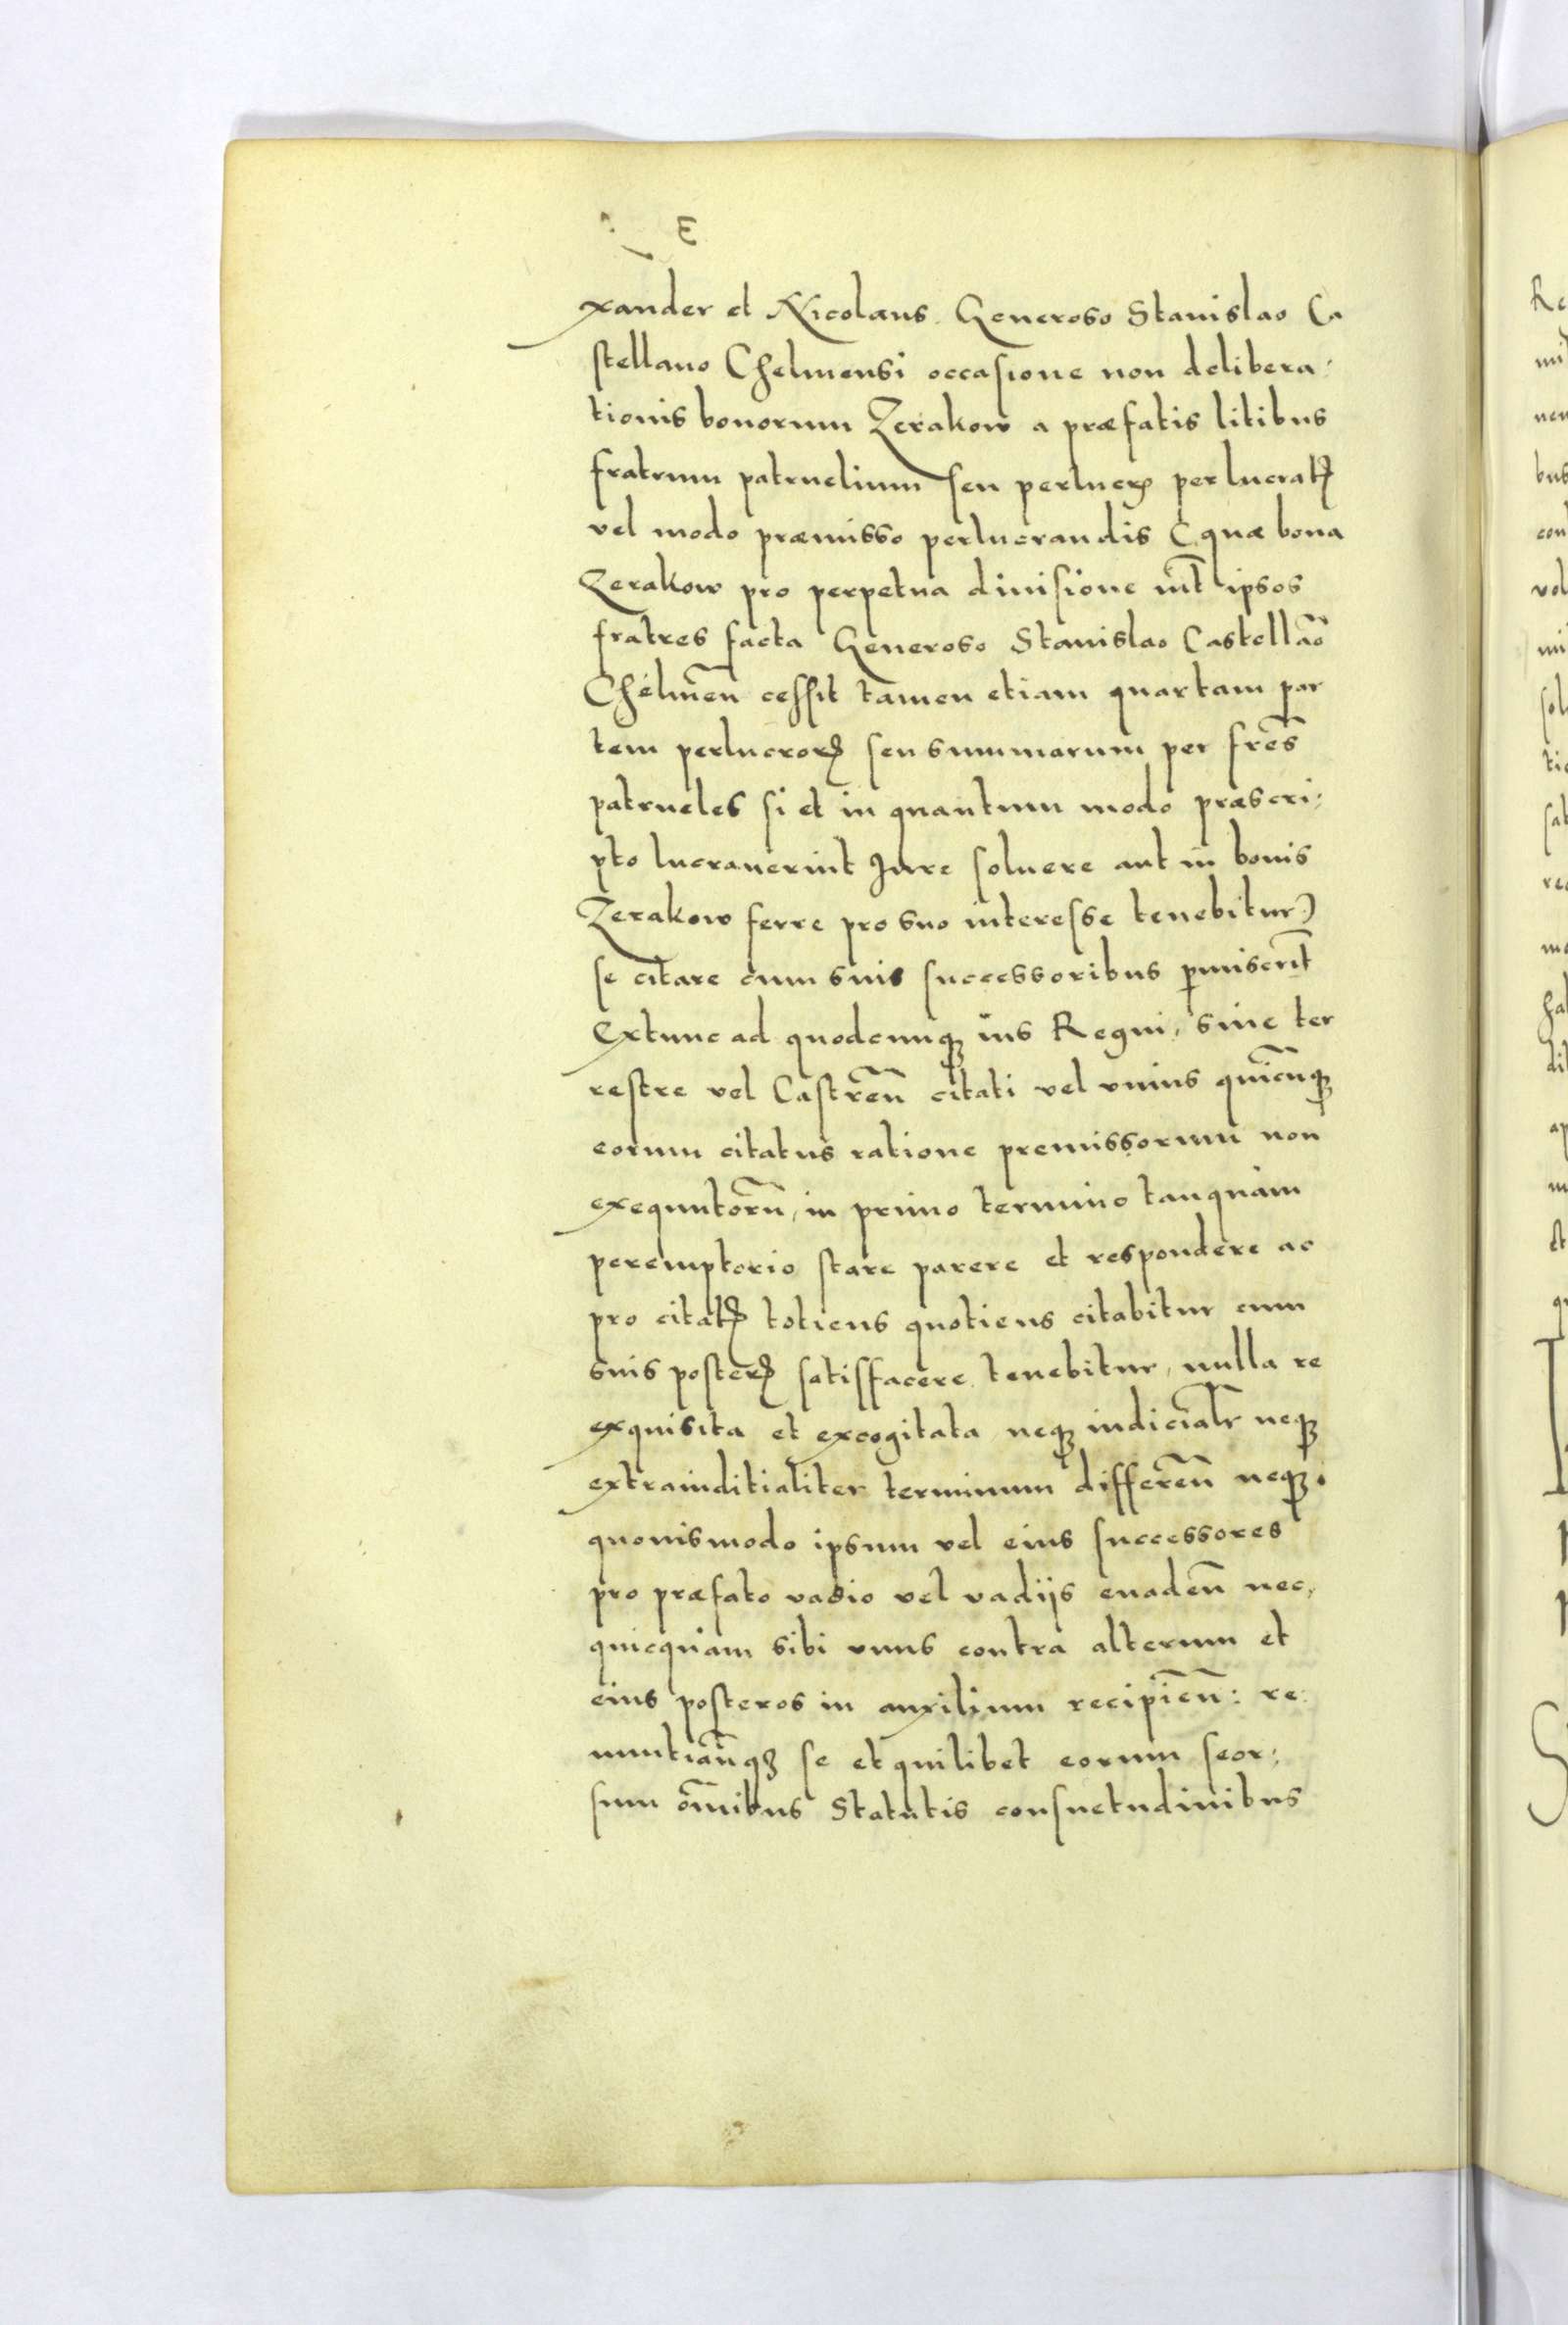 xander et Nicolaus Generoso Stanislao Ca
stellano Chelmensi occasione non delibera-
tionis bonorum Zerakow a præfatis litibus
fratrum patruelium seu perlucrꝭ perlucratꝭ
vel modo præmisso perlucrandis (quæ bona
Zerakow pro perpetua diuisione int̄ ipsos
fratres facta Generoso Stanislao Castellāo
Chelmēn cessit tamen etiam quartam par
tem perlucroꝝ seu summarum per frēs
patrueles si et in quantum modo præscri-
pto lucrauerint Iure soluere aut in bonis
Zerakow ferre pro suo interesse tenebitur)
se citare cum suis successoribus ꝑmiserīt
Extunc ad quodcunqꝫ ius Regni, siue ter
restre vel Castrēn citati vel vnius quicūqꝫ
eorum citatus ratione premissorum non
exequutorū, in primo termino tanquam
peremptorio stare parere et respondere ac
pro citatꝭ totiens quotiens citabitur cum
suis posterꝭ satisfacere tenebitur, nulla re
exquisita et excogitata neqꝫ iudicialr̄ neqꝫ
extraiuditialiter terminum differēn neqꝫ.
quouismodo ipsum vel eius successores
pro præfato vadio vel vadijs euadēn nec,
quicquam sibi vnus contra alterum et
eius posteros in auxilium recipiēn: re:
nuntiāuqꝫ se et quilibet eorum seor-
sum om̄ibus Statutis consuetudinibus